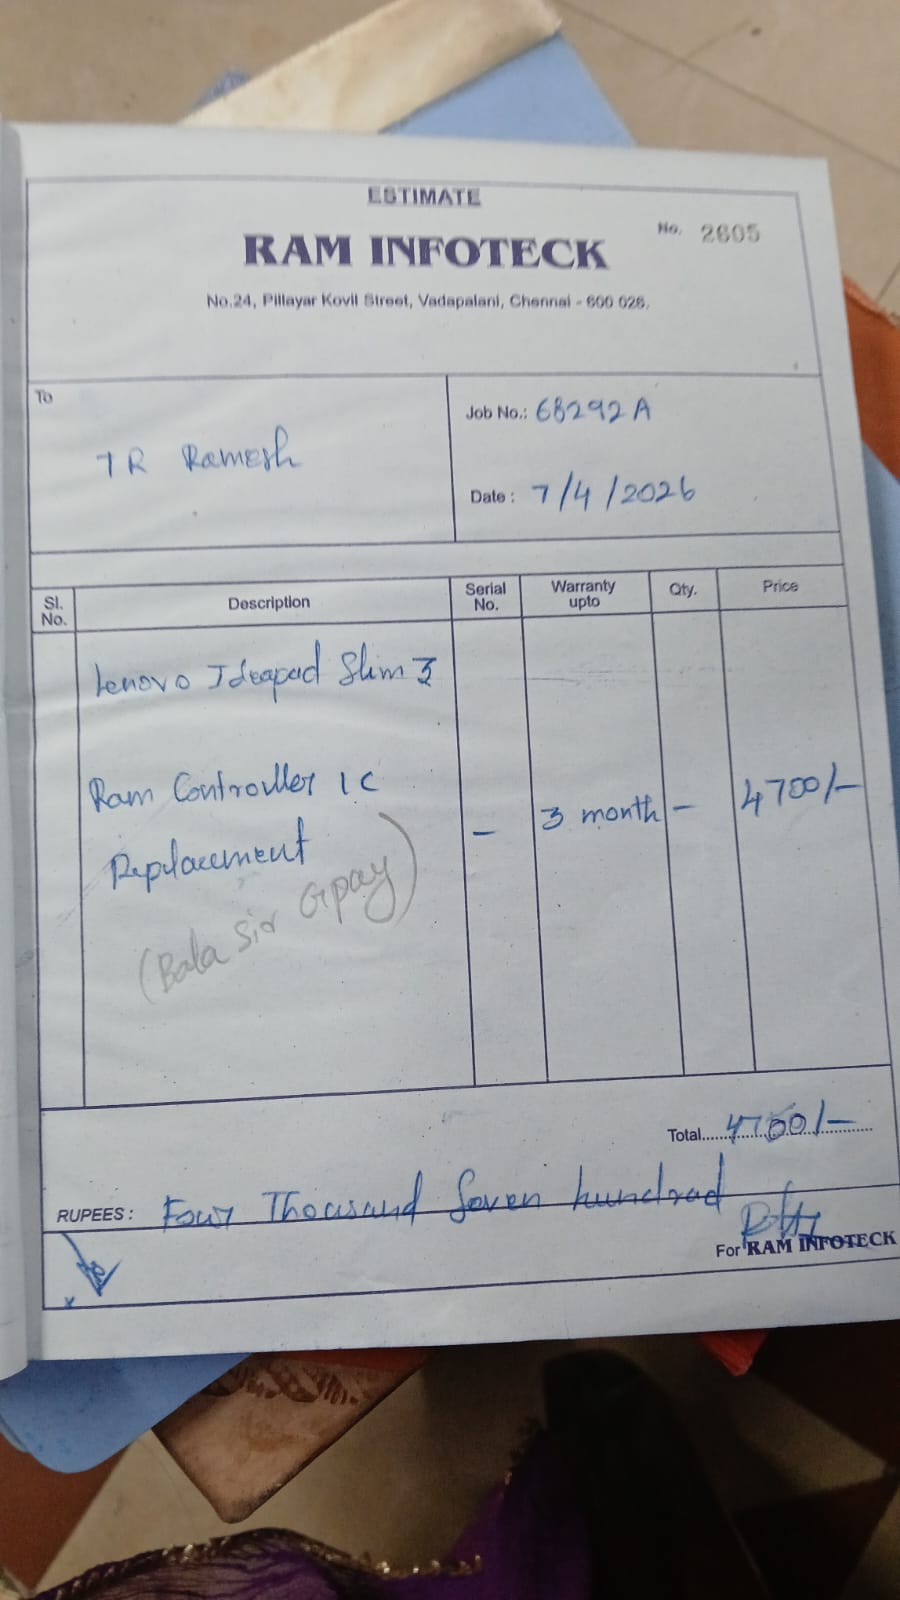 ESTIMATE
No. 2605
RAM INFOTECK
No.24, Pillayar Kovil Street, Vadapalani, Chennai - 600 026.
To
TR Ramesh
Job No.: 68292A
Date : 7/4/2026
Sl. No. Description Serial No. Warranty upto Qty. Price
Lenovo Ideapad Slim 3
Ram Controller IC
Replacement - 3 month - 4700/-
(Bala Sir Gpay)
Total......4700/-......
RUPEES : Four Thousand Seven hundrad
For RAM INFOTECK